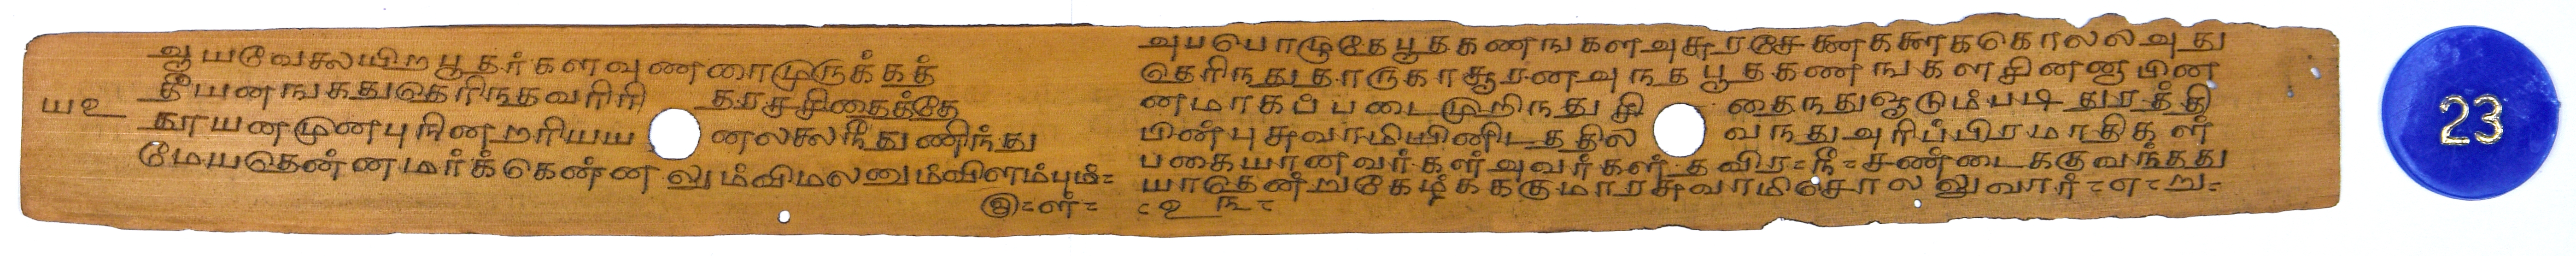 ஆயவேலயிறபூதர்களவுணனாமுருக்கத்
யஉ தீயனஙகதுதெரிநதவரிரி தரசசிதைத்தே
தூயனமுனபுநினறரியய னலசலநீதுணிந்து
மேயதெண்ணமர்க்கெண்ணலும்விமலனும்விளம்பும்=
இ=ள்=
அபபொழுதேபூதகணஙகளஅசுரசேனைகளைககொலலஅது
தெரிநதுதாருகாசூரனஅநதபூதகணஙகளசினனபின
னமாகப்படைமுறிநதுசி தைநதுஓடும்படிதுரத்தி
பின்புசுவாமியினிடததில வநதுஅரிப்பிரமாதிகள்
பகையானவர்கள்அவர்கள்தவிர=நீ=சண்டைககுவந்தது
யாதென்றுகேழ்கககுமாரசுவாமிசொலலுவார்=எ=று=
=உ௩=
23